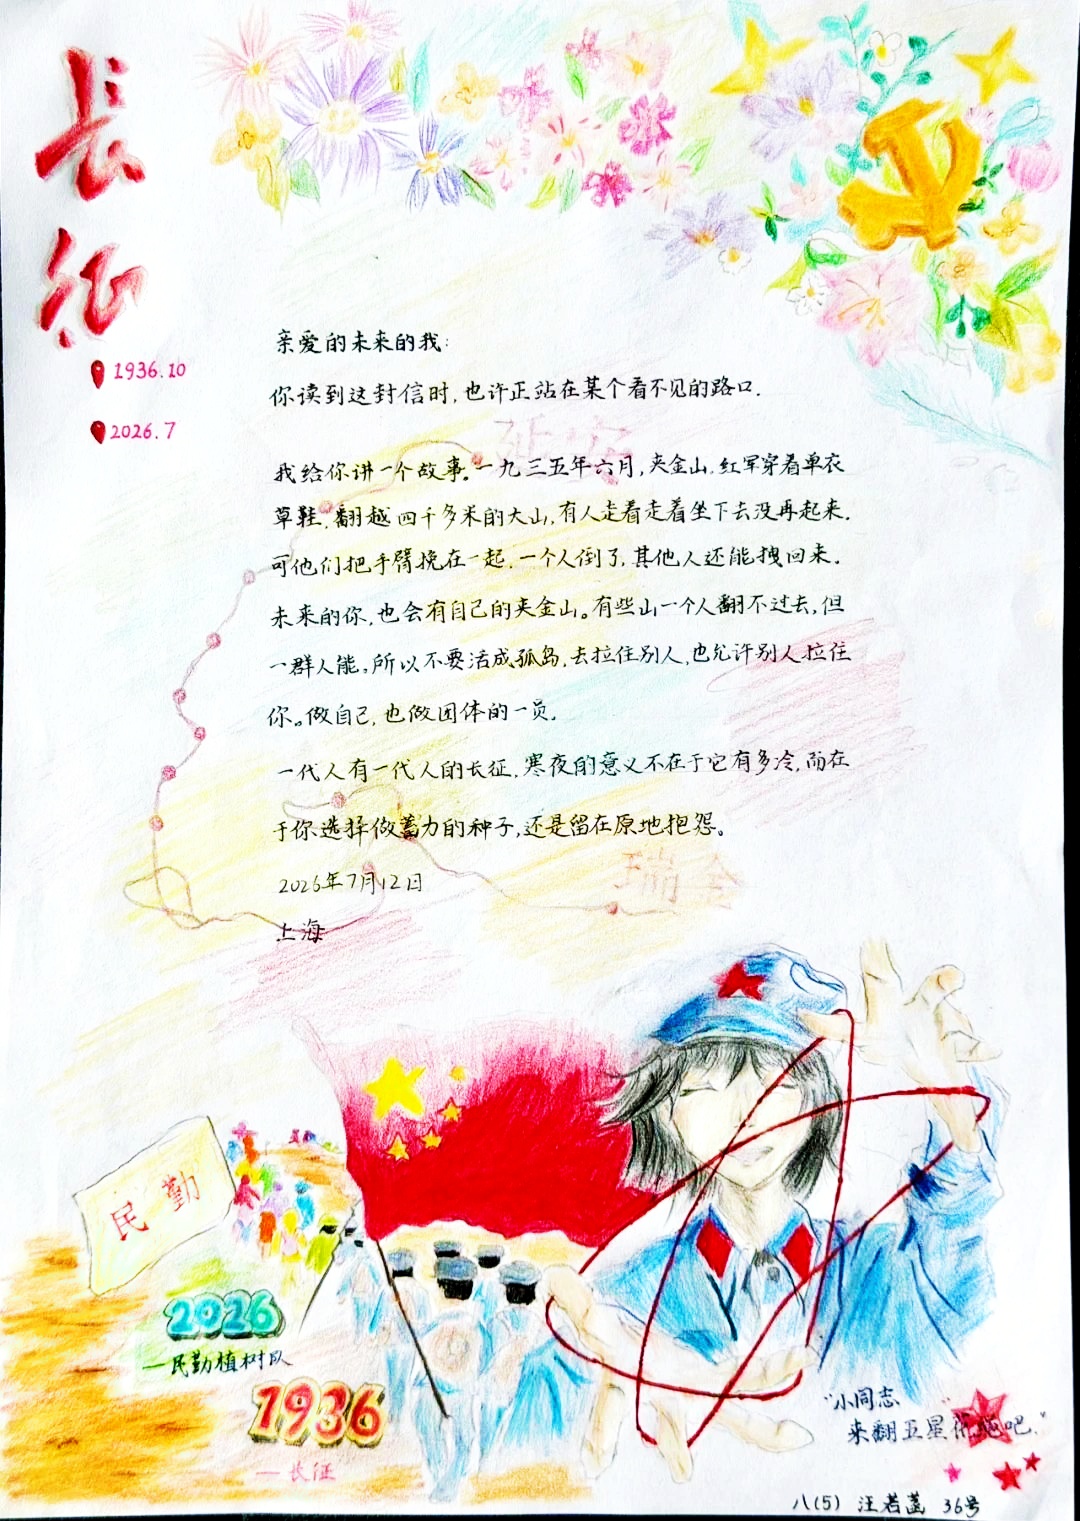 长征
1936.10
2026.7
亲爱的未来的我:
你读到这封信时,也许正站在某个看不见的路口.
延安
我给你讲一个故事。一九三五年六月,夹金山.红军穿着单衣
草鞋,翻越四千多米的大山,有人走着走着坐下去没再起来.
可他们把手臂挽在一起.一个人倒了,其他人还能拽回来.
未来的你,也会有自己的夹金山。有些山一个人翻不过去,但
一群人能。所以不要活成孤岛,去拉住别人,也允许别人拉住
你。做自己,也做团体的一员.
一代人有一代人的长征,寒夜的意义不在于它有多冷,而在
于你选择做蓄力的种子,还是留在原地抱怨。
瑞金
2026年7月12日
上海
民勤
2026
—民勤植树队
1936
—长征
"小同志
来翻五星花绳吧."
八(5) 汪若菡 36号